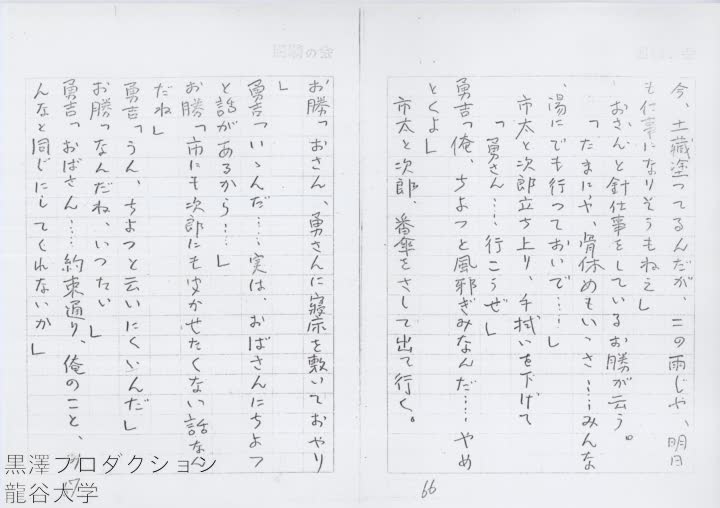 今、土蔵塗ってるんだが、この雨じゃ、明日
も仕事になりそうもねえ」
おさんと針仕事をしているお勝が云う。
「たまにゃ、骨休めもいゝさ……みんな
、湯にでも行っておいで……」
市太と次郎立ち上り、手拭いを下げて
「勇さん……行こうぜ」
勇吉「俺、ちょっと風邪ぎみなんだ……やめ
とくよ」
市太と次郎、番傘をさして出て行く。
66
お勝「おさん、勇さんに寝床を敷いておやり
」
勇吉「いゝんだ……実は、おばさんにちょっ
と話があるから……」
お勝「市にも次郎にもきかせたくない話なん
だね」
勇吉「うん、ちょっと云いにくいんだ」
お勝「なんだね、いったい」
勇吉「おばさん……約束通り、俺のこと、み
んなと同じにしてくれないか」
67
黒澤プロダクション
龍谷大学